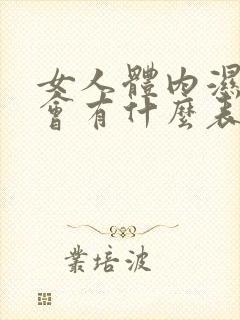 女人體內濕
會有什麼表
業培波